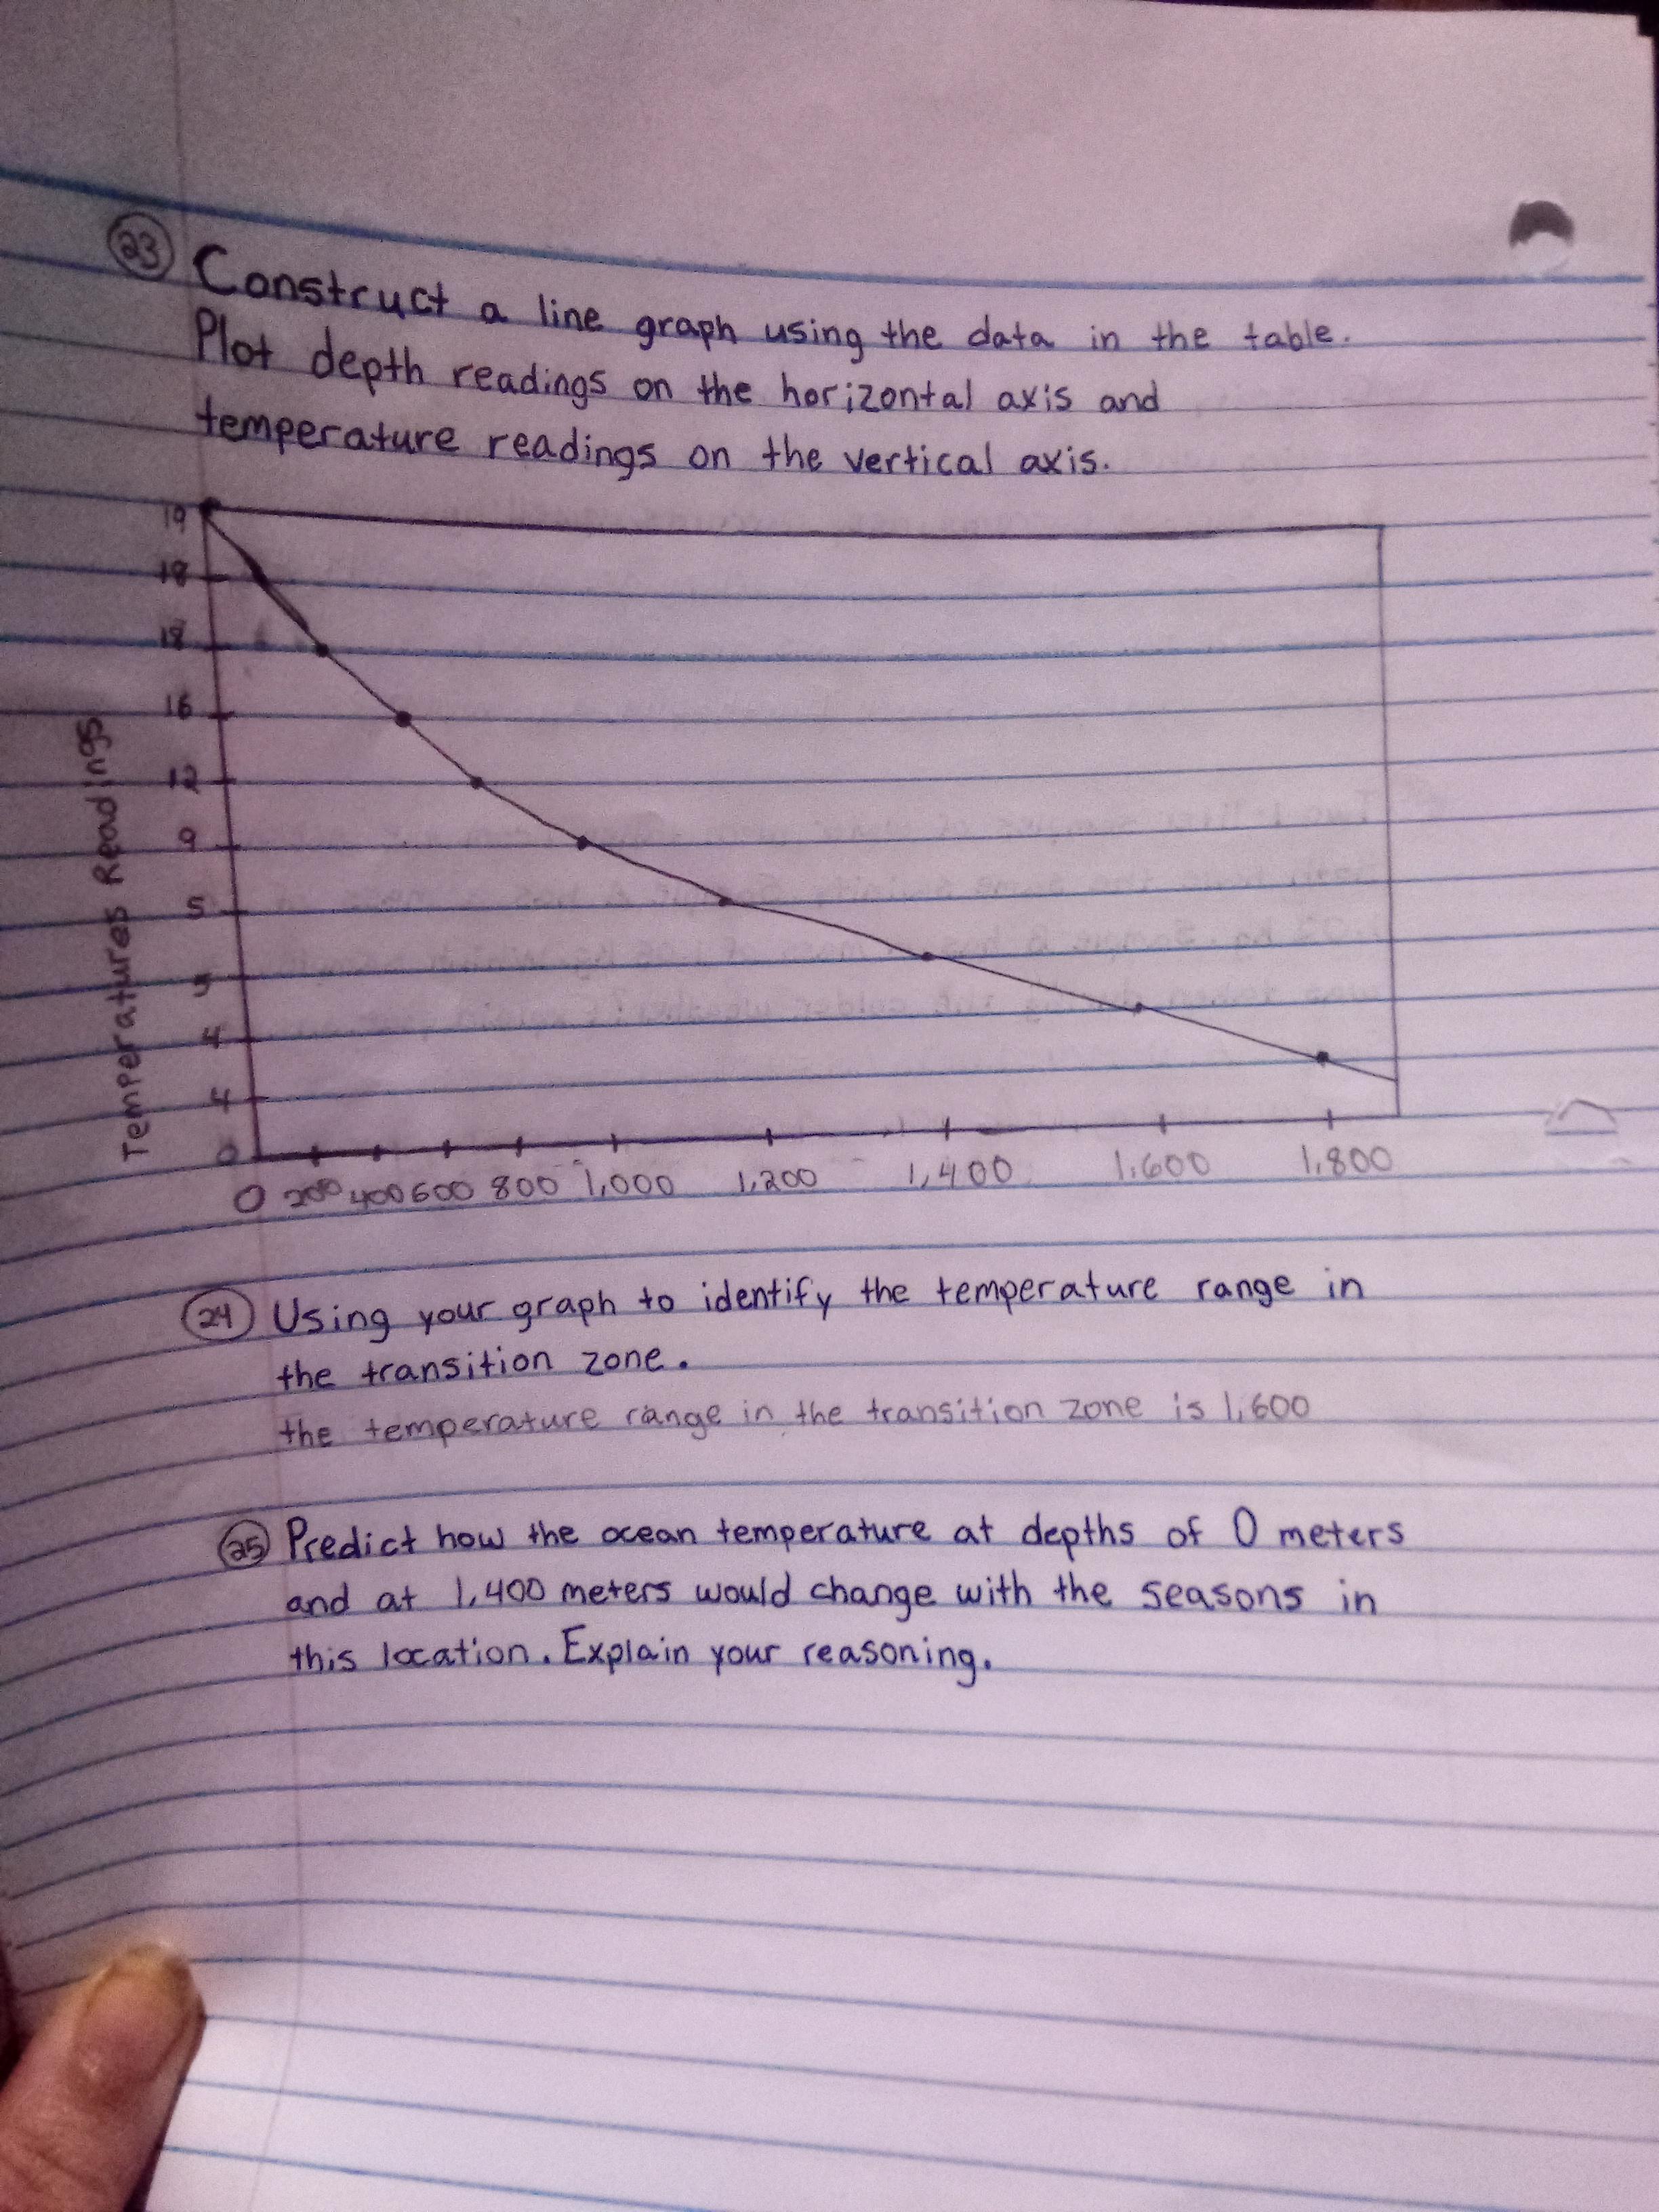 23 Construct a line graph using the data in the table.
Plot depth readings on the horizontal axis and
temperature readings on the vertical axis.
Temperatures Readings
19
18
18
16
12
9
5
4
4
0
0 200 400 600 800 1,000 1,200 1,400 1,600 1,800
24 Using your graph to identify the temperature range in
the transition zone.
the temperature range in the transition zone is 1,600
25 Predict how the ocean temperature at depths of 0 meters
and at 1,400 meters would change with the seasons in
this location. Explain your reasoning.